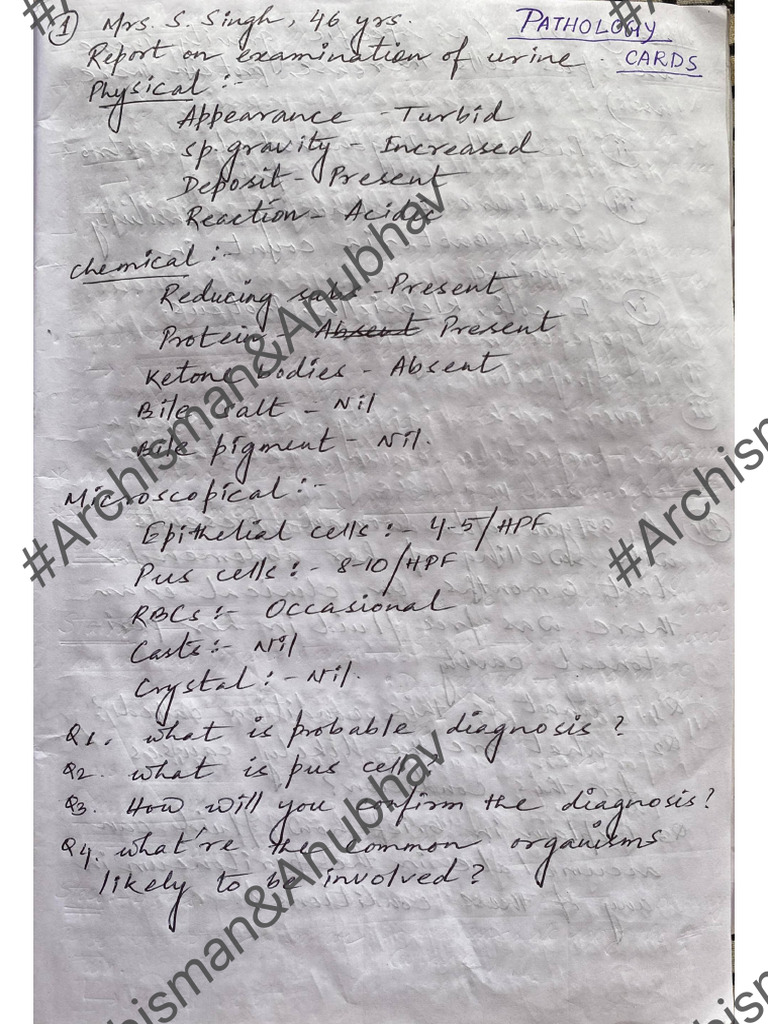 ① Mrs. S. Singh, 46 yrs.
PATHOLOGY
CARDS
Report on examination of urine.
Physical :-
Appearance - Turbid
sp. gravity - Increased
Deposit - Present
Reaction - Acidic
Chemical :-
Reducing subs - Present
Protein Absent Present
Ketone bodies - Absent
Bile salt - Nil
Bile pigment - Nil.
Microscopical :-
Epithelial cells :- 4-5/HPF
Pus cells :- 8-10/HPF
RBCs :- Occasional
Casts :- Nil
Crystal :- Nil.
Q1. what is probable diagnosis ?
Q2. what is pus cell
Q3. How will you confirm the diagnosis?
Q4. what're the common organisms
likely to be involved ?
#Archisman&Anubhav
#Archism
hisman&Anubhav